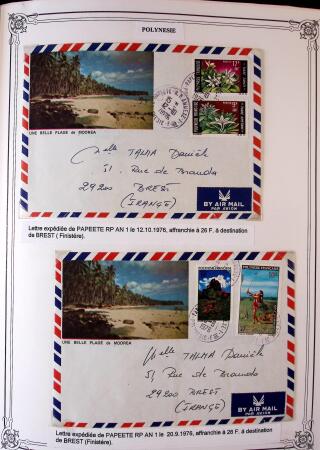 POLYNESIE
UNE BELLE PLAGE de MOOREA
Melle TALMA Danièle
51 Rue de
29200 BREST
(FRANCE)
BY AIR MAIL
PAR AVION
Lettre expédiée de PAPEETE RP AN 1 le 12.10.1976, affranchie à 26 F. à destination
de BREST ( Finistère).
POLYNESIE FRANÇAISE
UNE BELLE PLAGE de MOOREA
Melle TALMA Danièle
51 Rue de
29200 BREST
(FRANCE)
BY AIR MAIL
PAR AVION
Lettre expédiée de PAPEETE RP AN 1 le 20.9.1976, affranchie à 26 F. à destination
de BREST (Finistère).